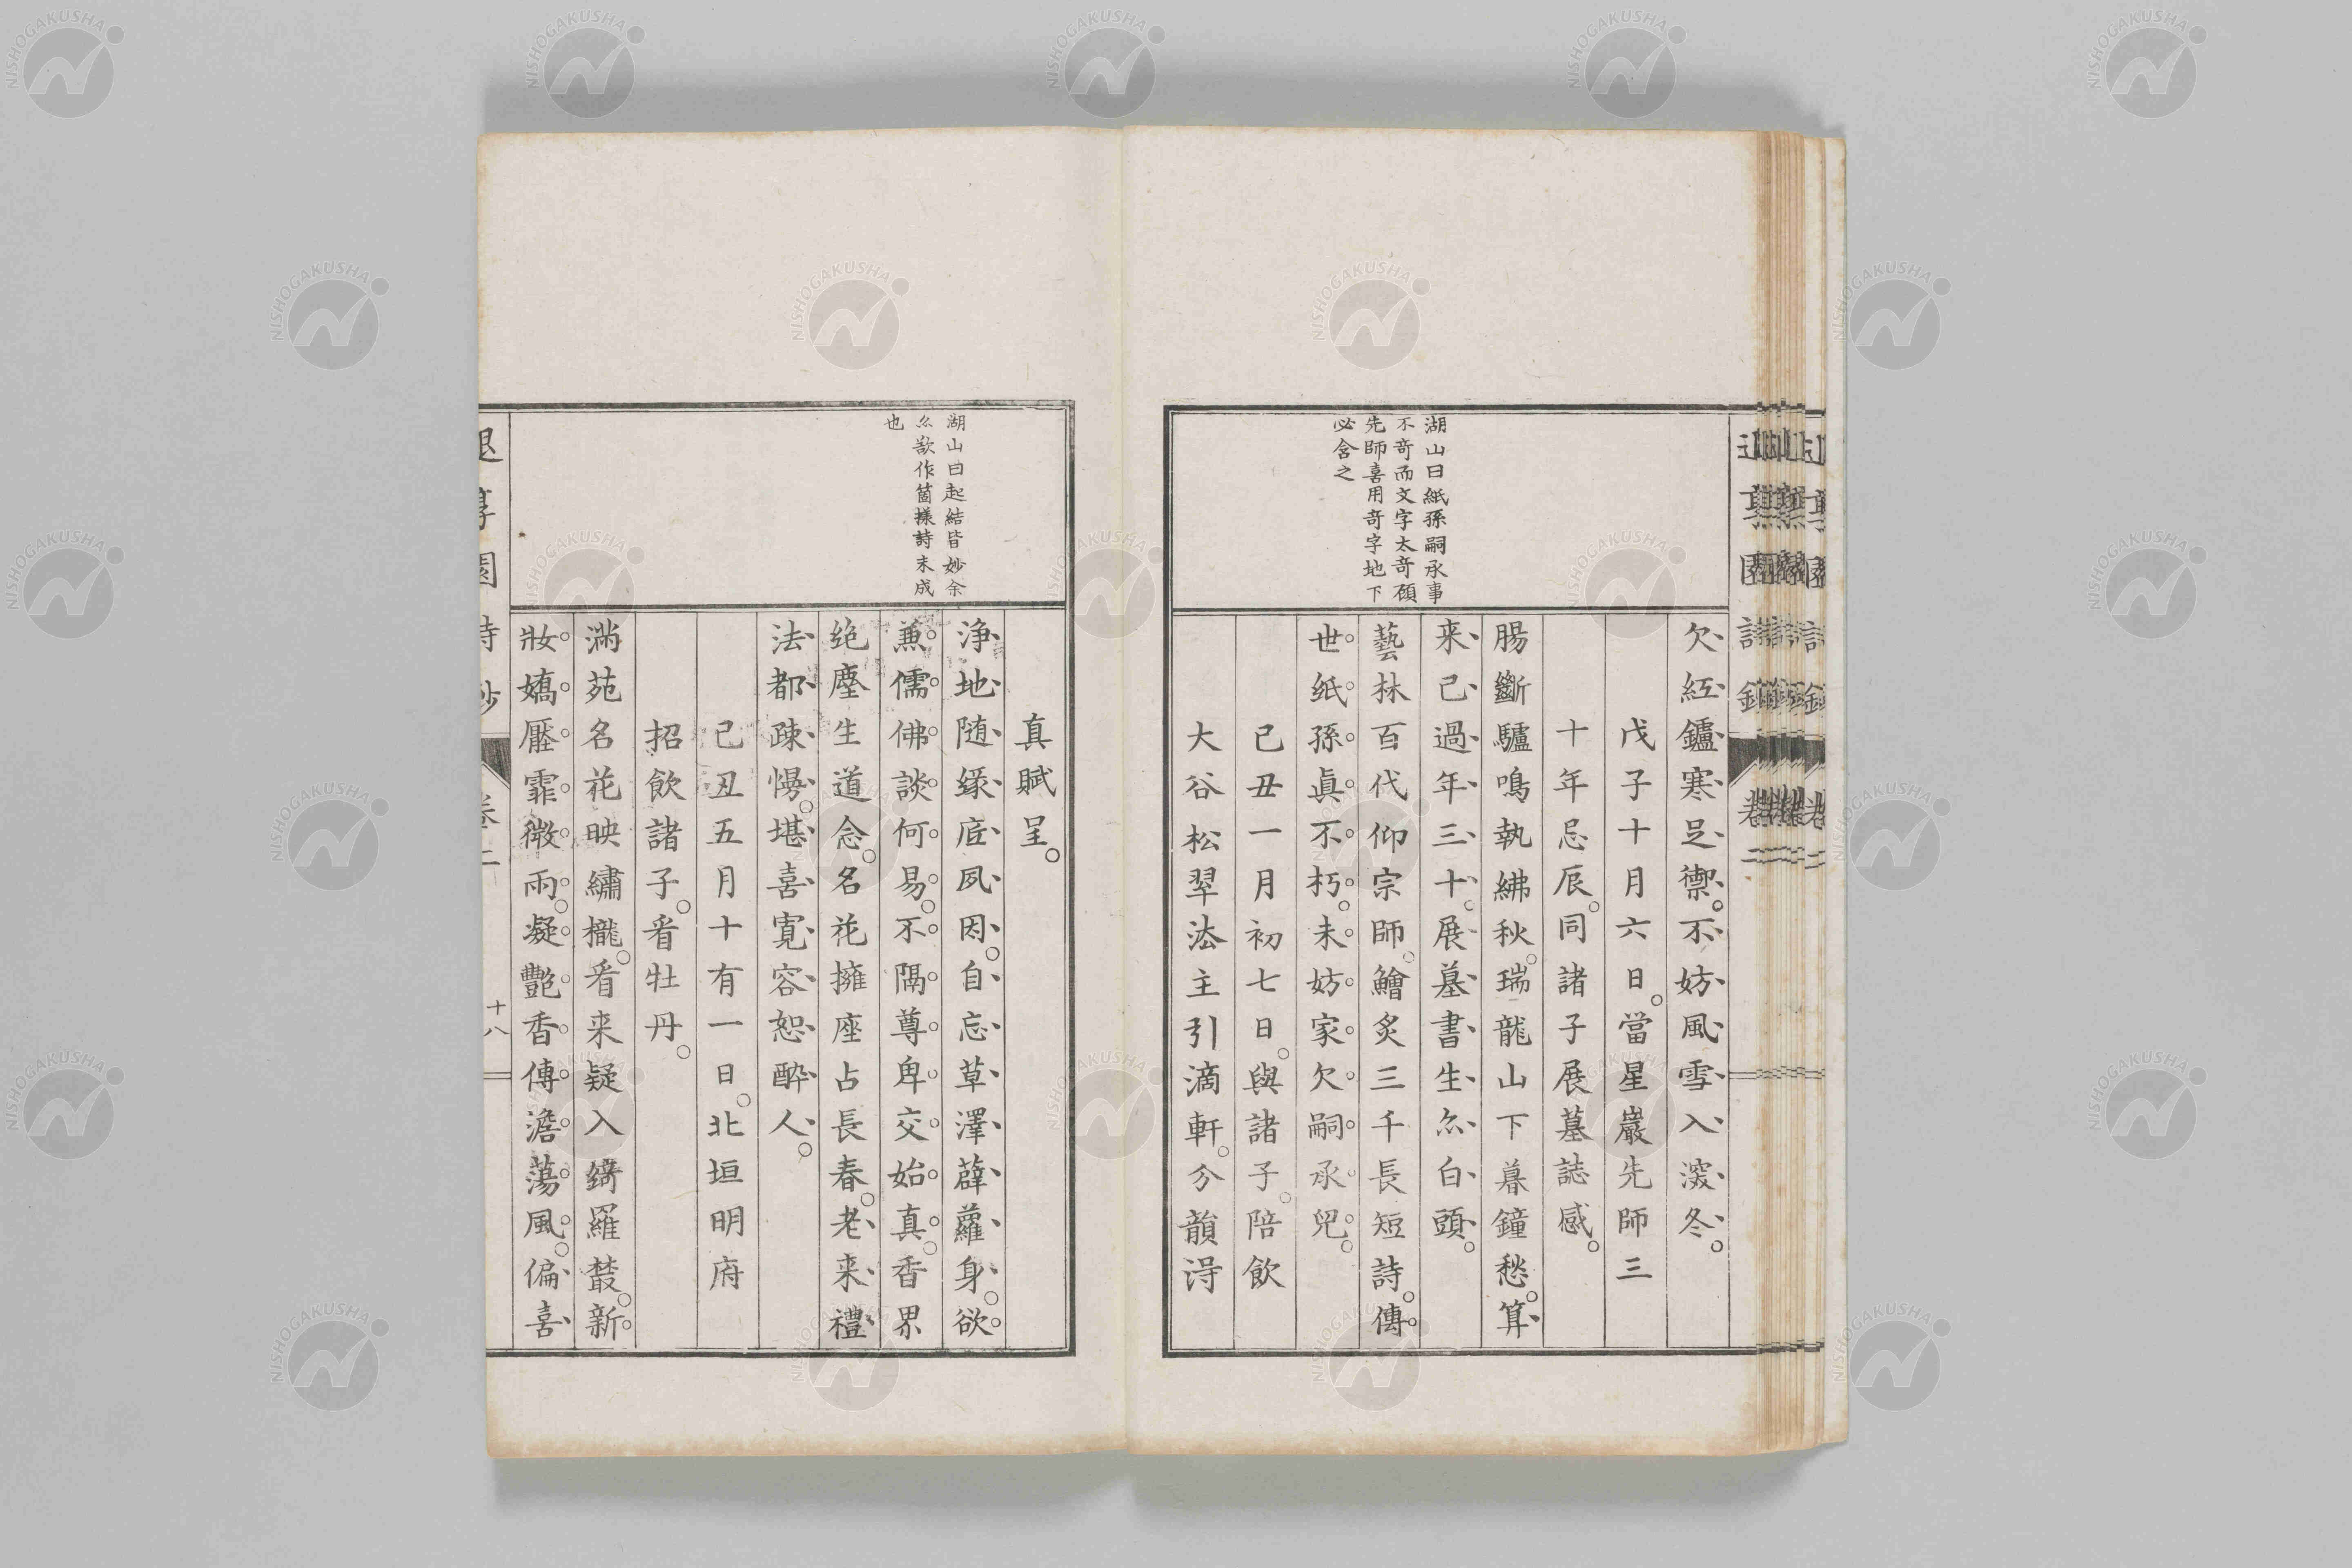 欠紅鑪寒足禦。不妨風雪入深冬。
戊子十月六日。當星巖先師三
十年忌辰。同諸子展墓誌感。
腸斷驢鳴執紼秋。瑞龍山下暮鐘愁。算
来已過年三十。展墓書生亦白頭。
藝林百代仰宗師。鱠炙三千長短詩。傳
世紙孫眞不朽。未妨家欠嗣承兒。
己丑一月初七日。與諸子。陪飲
大谷松翠法主引滴軒。分韻得
湖山曰紙孫嗣承事
不奇而文字太奇顧
先師喜用奇字地下
必含之
真賦呈。
浄地随縁底夙因。自忘草澤薜蘿身。欲
兼儒佛談何易。不隔尊卑交始真。香界
絶塵生道念。名花擁座占長春。老来禮
法都疎慢。堪喜寛容恕酔人。
己丑五月十有一日。北垣明府
招飲諸子。看牡丹。
満苑名花映繡櫳。看来疑入綺羅叢。新
妝嬌壓霏微雨。凝艷香傳澹蕩風。偏喜
湖山曰起結皆妙余
亦欲作箇様詩未成
也
退享園詩鈔 卷二 十八
NISHOGAKUSHA